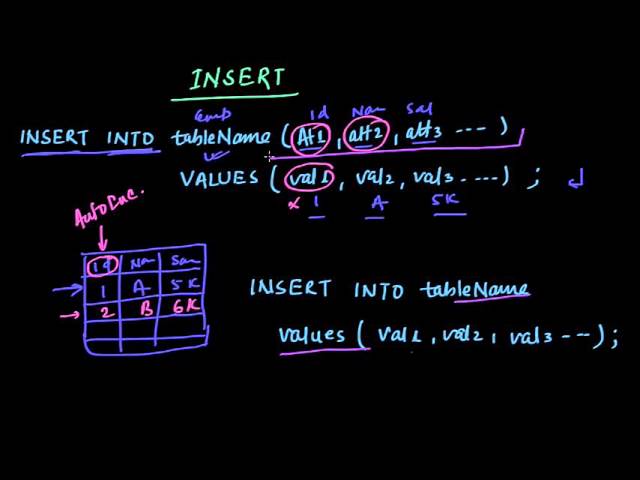 INSERT
Emp Id Nam Sal
INSERT INTO tableName ( Att1 , att2 , att3 ---- )
VALUES ( val1 , val2 , val3 ---- ) ;
x 1 A 5K
Auto Inc.
Id Na Sal
1 A 5K
2 B 6K
INSERT INTO tableName
values ( val1 , val2 , val3 --- ) ;